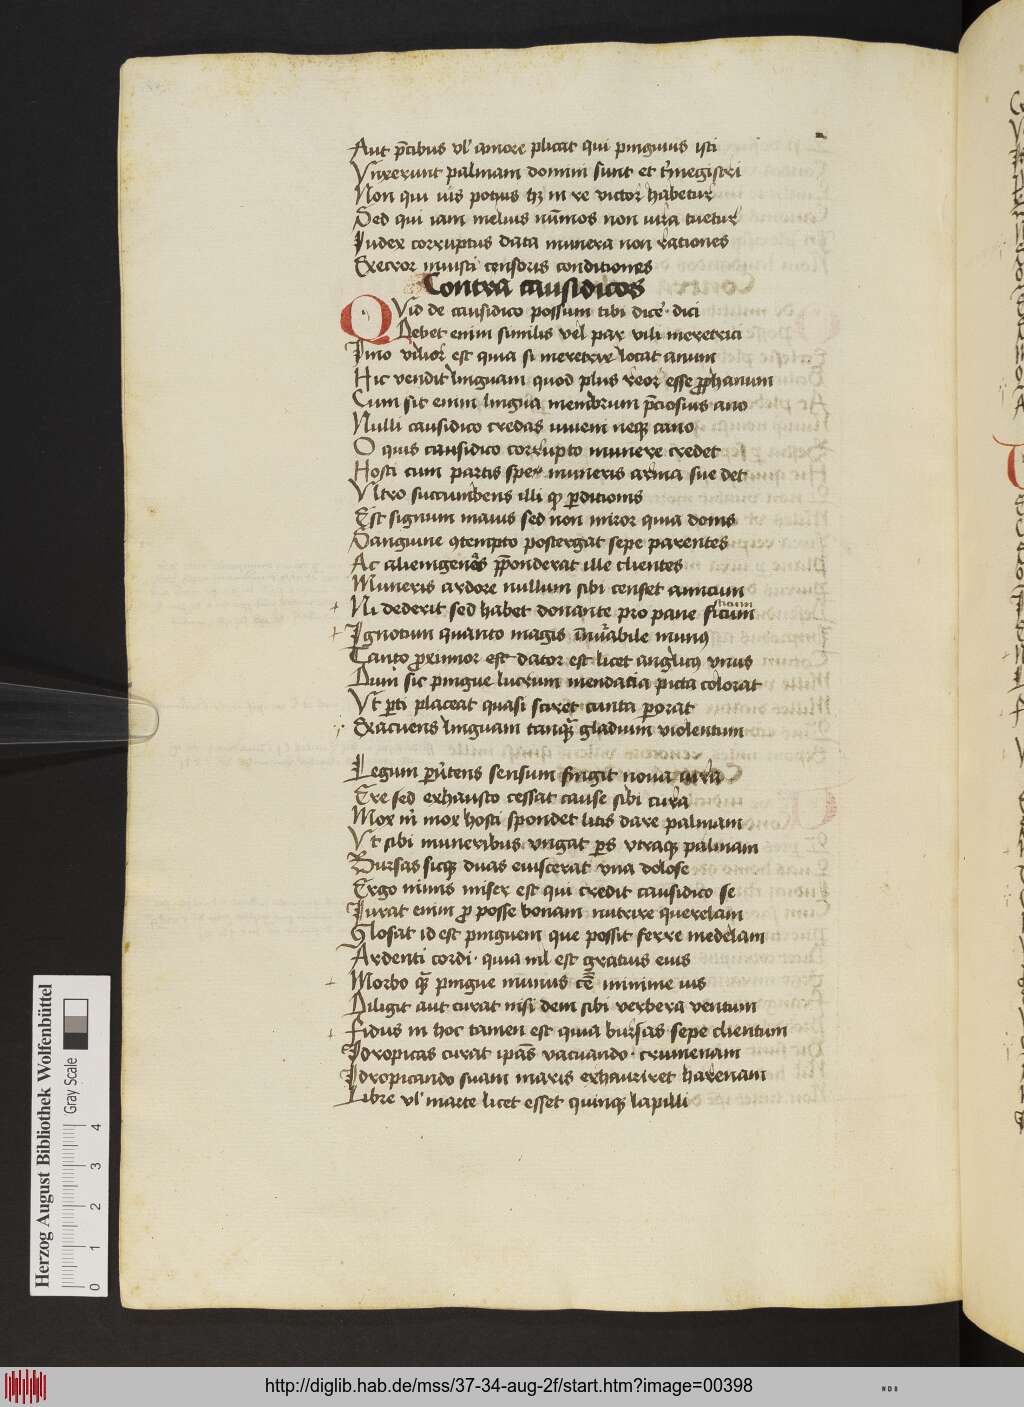 Aut p̄cibus vl' amore plicat qui pinguius isti
Vnxerunt palmam domini sunt et t'megistri
Non qui iūs potius hꝫ in re victor habetur
Sed qui iam melius nūmos non iura tuetur
Iudex corruptus data munera non rationes
Execror iniusti censoris conditiones
Contra causidicos
QVid de causidico possum tibi dicē· dici
Debet enim similis vel par vili meretrici
Imo vilior est quia si meretrix locat anum
Hic vendit linguam quod plus reor esse ꝓphanum
Cum sit enim lingua membrum p̄ciosius ano
Nulli causidico credas iuuem neqꝫ cano
O quis causidico corrupto munere credet
Hosti cum partis spe muneris arma sue det
Vltro succumbens illi ꝙ ꝑditionis
Est signum maius sed non miror quia donis
Sanguine ꝯtempto postergat sepe parentes
Ac alienigenos p̄ponderat ille clientes
Muneris ardore nullum sibi censet amicum
Ni dederit sed habet donante pro pane ficum
Ignotum quanto magis inuiabile munus
Tanto proximior est dator est licet anglicus vnus
Dum sic pingue lucrum mendacia picta colorat
Vt ꝑti placeat quasi sciret cunta ꝑorat
Exacuens linguam tanqꝫ gladium violentum
Legum ꝑu'tens sensum fingit noua iura
Ere sed exhausto cessat cause sibi cura
Mox m' mox hosti spondet litis dare palmam
Vt sibi muneribus vngat ꝑs vtraqꝫ palmam
Bursas sicqꝫ duas euiscerat vna dolose
Ergo nimis miser est qui credit causidico se
Iurat enim ꝓ posse bonam nutrire querelam
Glosat id est pinguem que possit ferre medelam
Ardenti cordi· quia nil est gratius eius
Morbo qꝫ pingue munus cē minime ius
Diligit aut curat nisi dem sibi verbera ventum
Fidus in hoc tamen est quia bursas sepe clientum
Idropicas curat ip̄as vacuando· crumenam
Idropicando suam maris exhauriret harenam
Libre vl' marte licet esset quinqꝫ lapilli
Herzog August Bibliothek Wolfenbüttel
Gray Scale
0 1 2 3 4
http://diglib.hab.de/mss/37-34-aug-2f/start.htm?image=00398